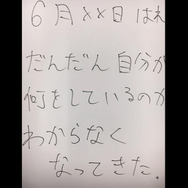 6月××日 はれ
だんだん 自分が
何をしているのか
わからなく
なってきた。